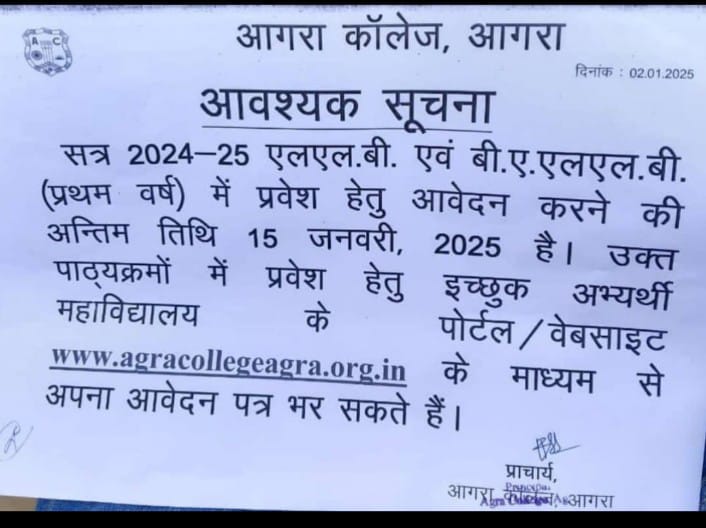 A C
आगरा कॉलेज, आगरा
दिनांक : 02.01.2025
आवश्यक सूचना
सत्र 2024–25 एलएल.बी. एवं बी.ए.एलएल.बी.
(प्रथम वर्ष) में प्रवेश हेतु आवेदन करने की
अन्तिम तिथि 15 जनवरी, 2025 है। उक्त
पाठ्यक्रमों में प्रवेश हेतु इच्छुक अभ्यर्थी
महाविद्यालय के पोर्टल/वेबसाइट
www.agracollegeagra.org.in के माध्यम से
अपना आवेदन पत्र भर सकते हैं।
प्राचार्य,
Principal
आगरा आगरा